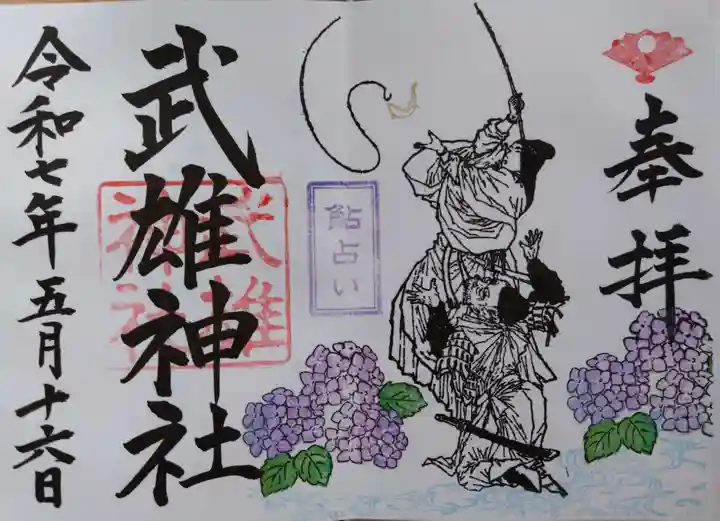 奉拝
鮎占い
武雄神社
武雄
神社
令和七年五月十六日